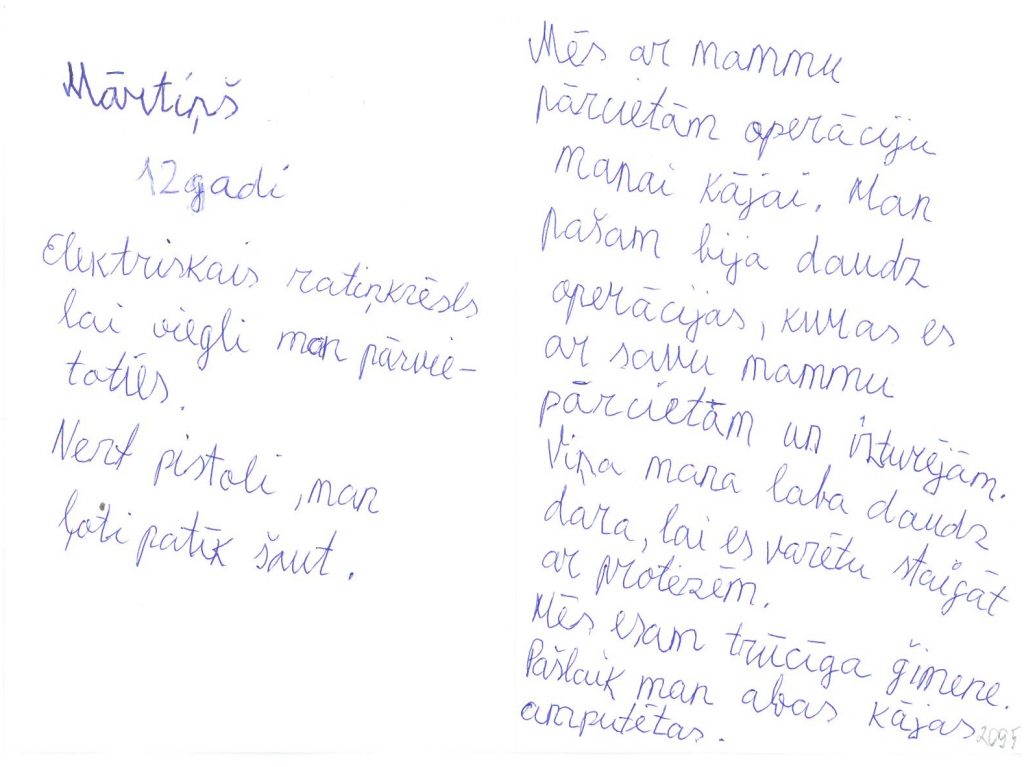 Mārtiņš
12 gadi
Elektriskais ratiņkrēsls
lai viegli man pārvie-
toties.
Nerf pistoli, man
ļoti patīk šaut.
Mēs ar mammu
pārcietām operāciju
manai kājai. Man
pašam bija daudz
operācijas, kuras es
ar savu mammu
pārcietām un izturējām.
Viņa mana laba daudz
dara, lai es varētu staigāt
ar protēzēm.
Mēs esam trūcīga ģimene.
Pašlaik man abas kājas
amputētas.
2095